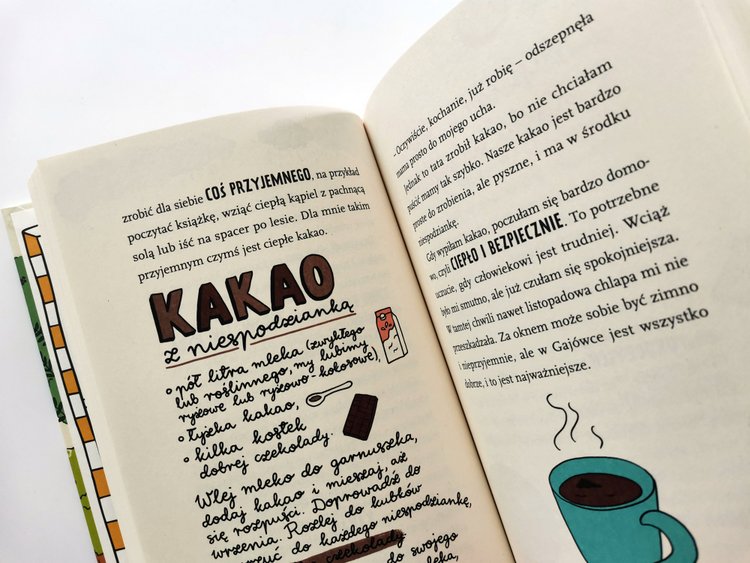 zrobić dla siebie COŚ PRZYJEMNEGO, na przykład
poczytać książkę, wziąć ciepłą kąpiel z pachnącą
solą lub iść na spacer po lesie. Dla mnie takim
przyjemnym czymś jest ciepłe kakao.
KAKAO
z niespodzianką
• pół litra mleka (zwykłego
lub roślinnego, my lubimy
ryżowe lub ryżowo-kokosowe),
• łyżka kakao,
• kilka kostek
dobrej czekolady.
Wlej mleko do garnuszka,
dodaj kakao i mieszaj, aż
się rozpuści. Doprowadź do
wrzenia. Rozlej do kubków
do każdego niespodziankę,
czekolady
do swojego
– Oczywiście, kochanie, już robię – odszepnęła
mama prosto do mojego ucha.
Jednak to tata zrobił kakao, bo nie chciałam
puścić mamy tak szybko. Nasze kakao jest bardzo
proste do zrobienia, ale pyszne, i ma w środku
niespodziankę.
Gdy wypiłam kakao, poczułam się bardzo domo-
wo, czyli CIEPŁO I BEZPIECZNIE. To potrzebne
uczucie, gdy człowiekowi jest trudniej. Wciąż
było mi smutno, ale już czułam się spokojniejsza.
W tamtej chwili nawet listopadowa chlapa mi nie
przeszkadzała. Za oknem może sobie być zimno
i nieprzyjemnie, ale w Gajówce jest wszystko
dobrze, i to jest najważniejsze.